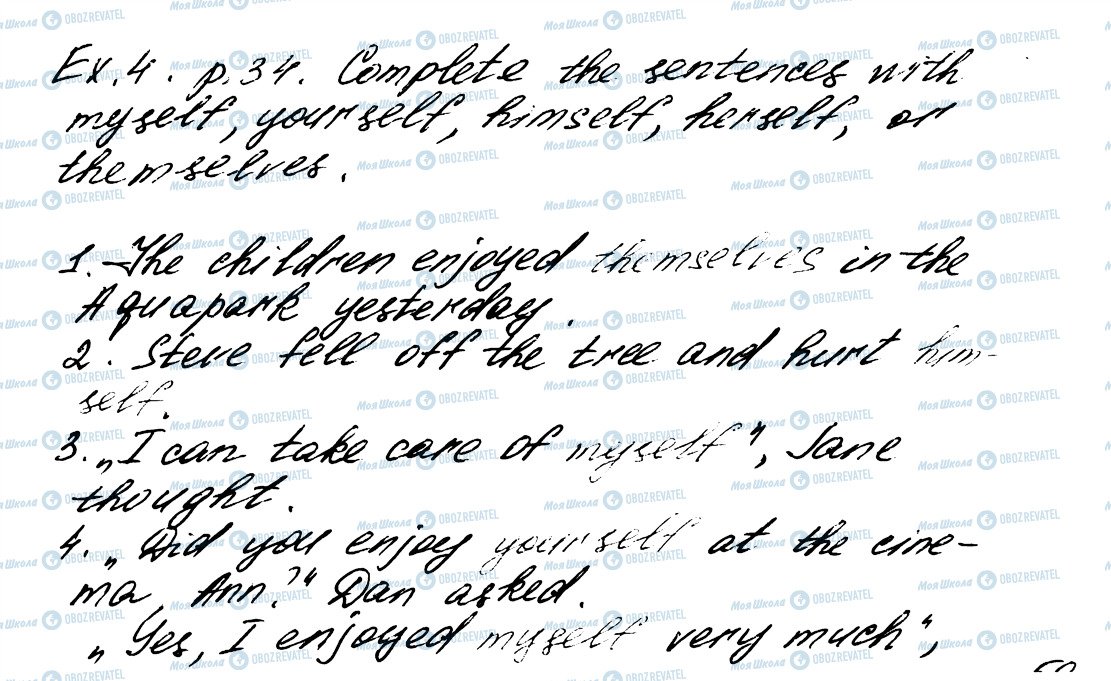 Ex. 4. p. 34. Complete the sentences with
myself, yourself, himself, herself, or
themselves.
1. The children enjoyed themselves in the
Aquapark yesterday.
2. Steve fell off the tree and hurt him-
self.
3. „I can take care of myself", Jane
thought.
4. „Did you enjoy yourself at the cine-
ma, Ann?" Dan asked.
„Yes, I enjoyed myself very much",